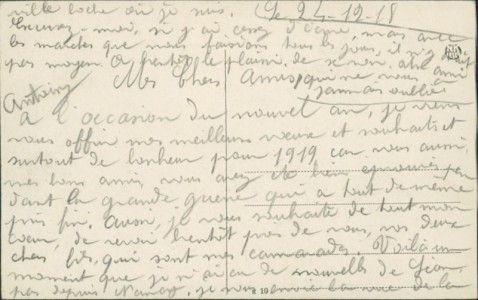 ville boche où je suis. Le 24-12-18
Excusez-moi, si j'ai cessé d'écrire, mais avec
les marches que nous faisions tous les jours, il n'y
pas moyen. le plaisir de se voir.
Mes Chers Amis, qui ne vous a
jamais oublié
Antoine
A l'occasion du nouvel an, je viens
vous offrir mes meilleurs vœux et souhaits et
surtout de bonheur pour 1919 car vous aussi,
mes bons amis vous avez été bien éprouvés pen
dant la grande guerre qui a tout de même
pris fin. Aussi, je vous souhaite de tout mon
cœur, de revoir bientôt près de vous, vos deux
chers fils, qui sont mes camarades. Voilà un
moment que je n'ai eu de nouvelles de Léon,
pas depuis Nancy, je vous envoie la vue de la